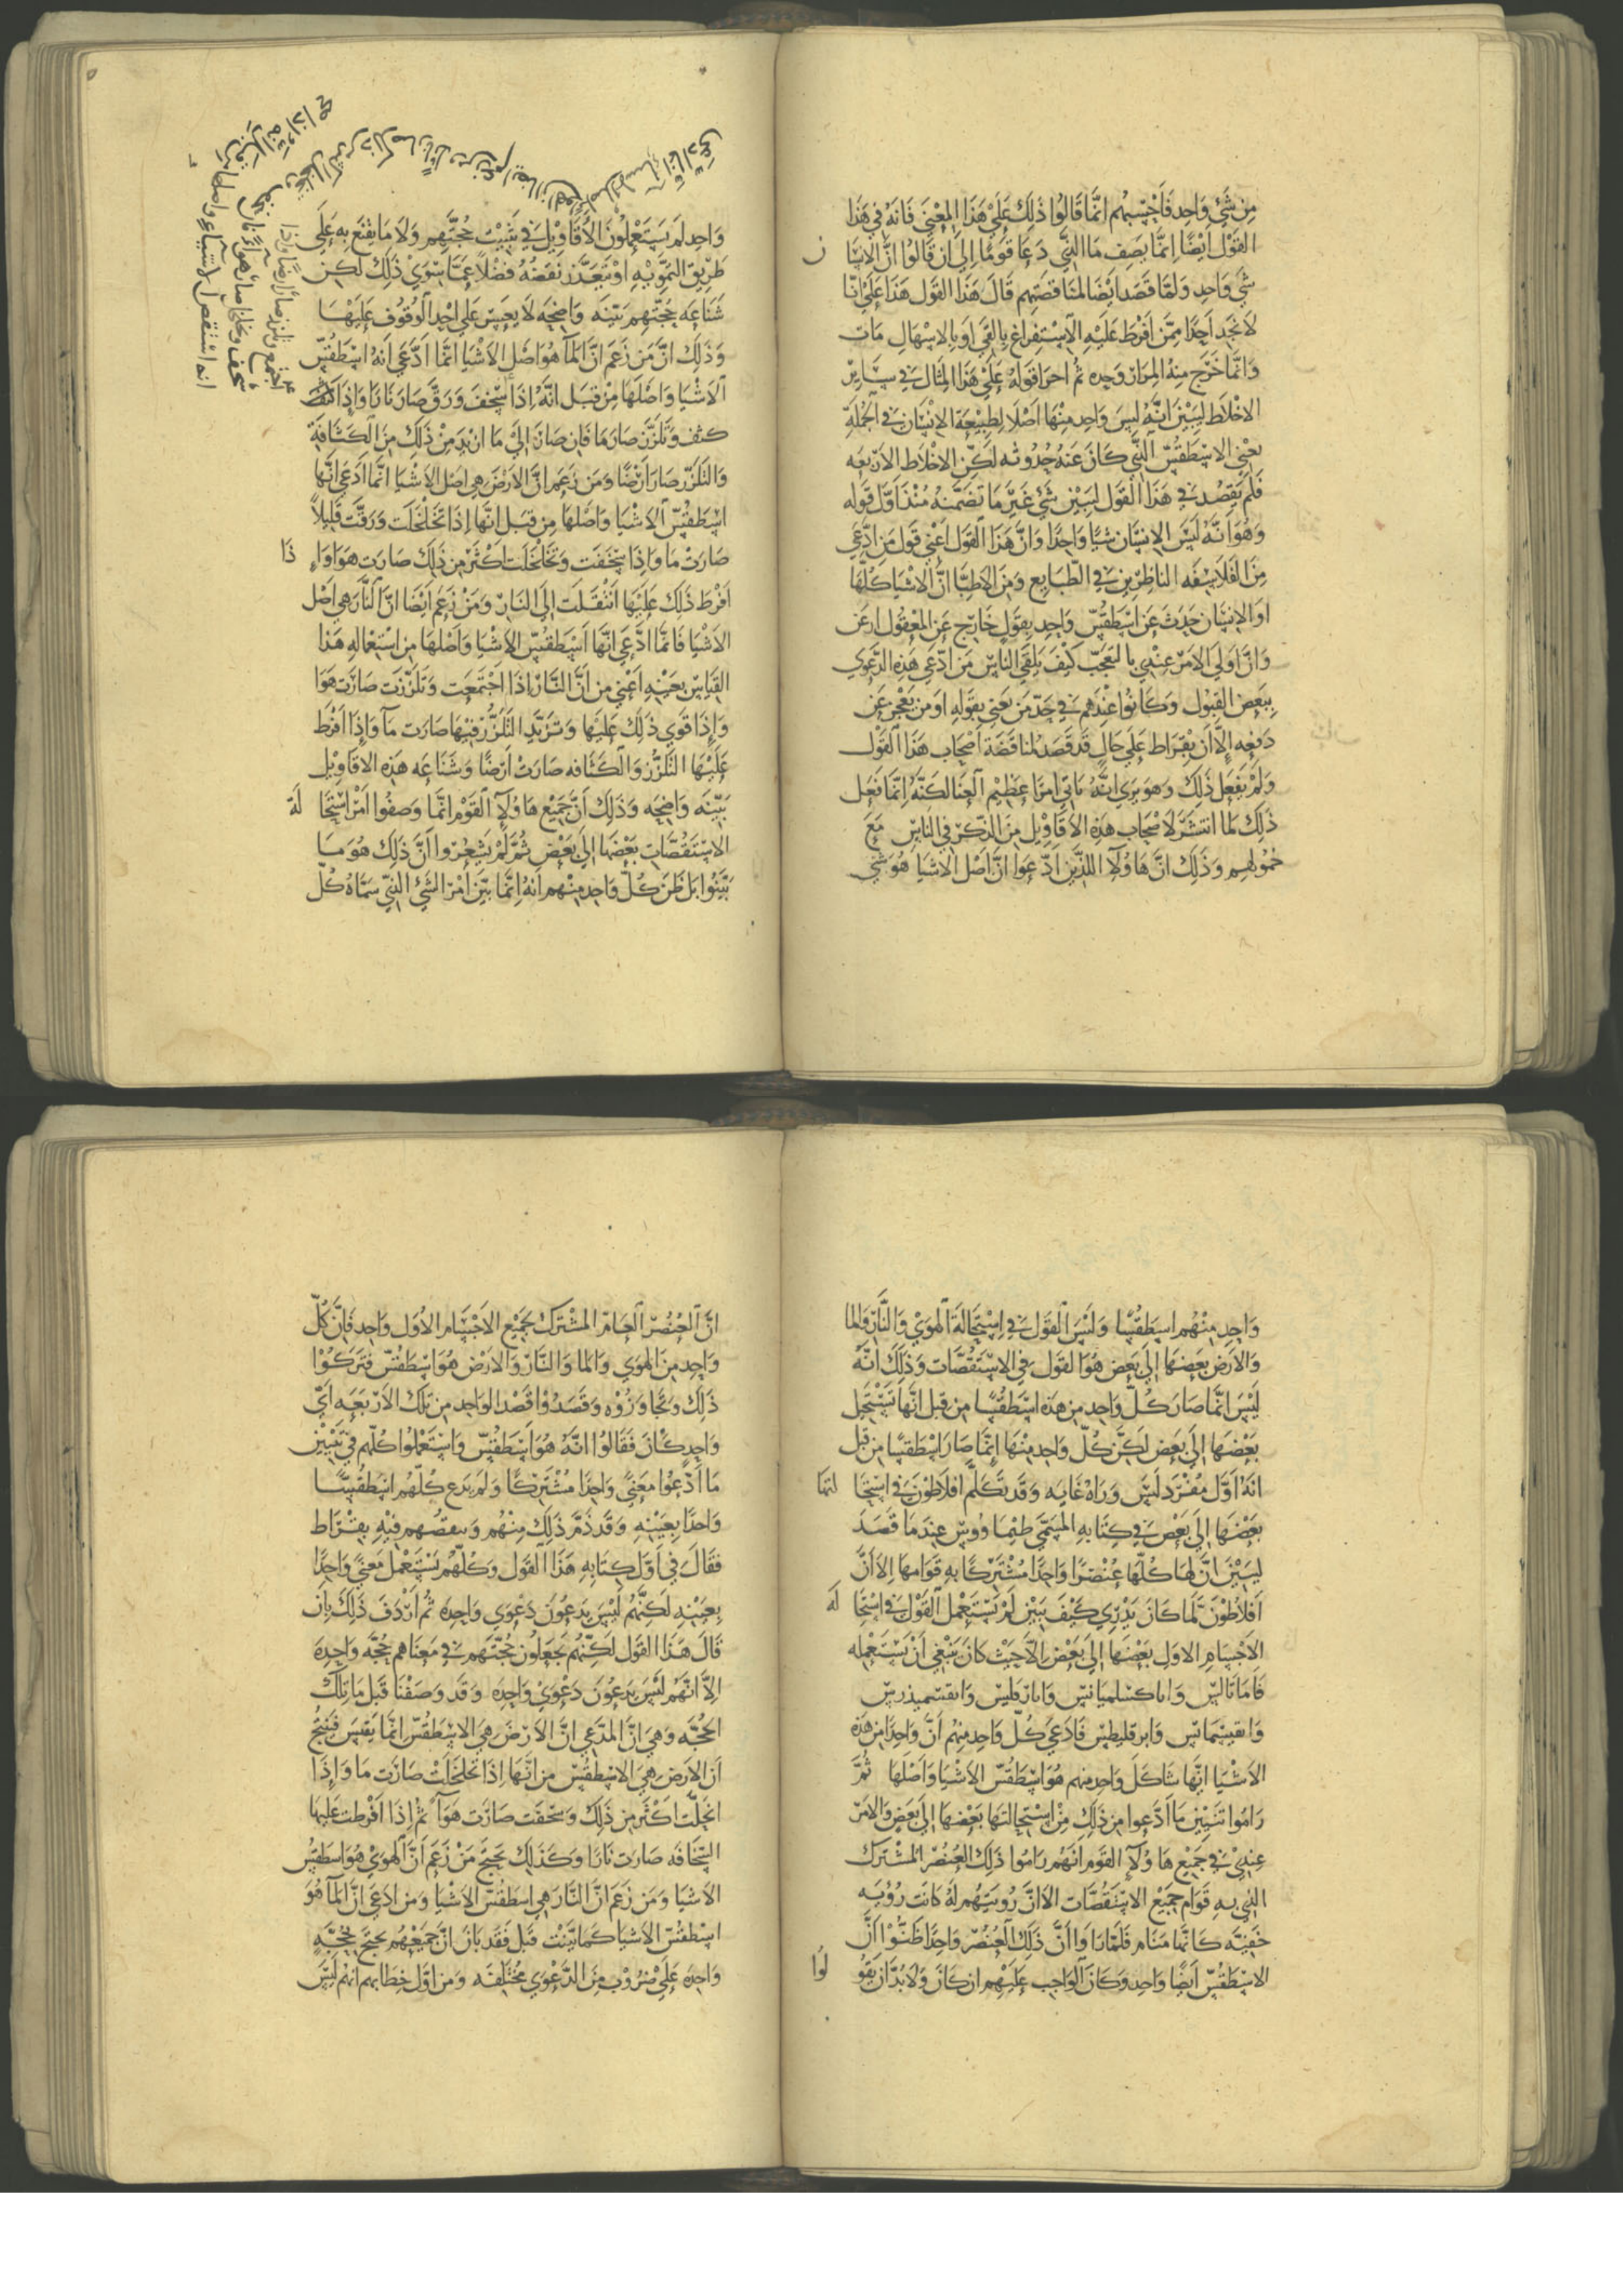 من شي واحد فاحسبهم انما قالوا ذلك علي هذا المعني فانه في هذا
القول ايضا انما يصف ما الذي دعا قوما الي ان قالوا ان الانسا ن
شي واحد ولما قصد ايضا لمناقضتهم قال هذا القول هذا علي انا
لا نجد احدا ممن افرط عليه الاستفراغ بالقي او بالاسهال مات
وانما خرج منه المرار وحده ثم اجرا قوله علي هذا المثال في ساير
الاخلاط ليبين انه ليس واحد منها اصلا لطبيعة الانسان في الجملة
يعني الاسطقس الذي كان عنه حدوثه لكن الاخلاط الاربعه
فلم يقصد في هذا القول ليبين شي غير ما تضمنه منذ اول قوله
وهو انه ليس الانسان شيا واحدا وان هذا القول اعني قول من ادعي
من الفلاسفه الناظرين في الطبايع ومن الاطبا ان الاشيا كلها
او الانسان حدث عن اسطقس واحد بقول خارج عن المعقول
وان اولي الامر عندي بالتعجب كيف يلقي الناس من ادعي هذه الدعوي
ببعض القبول وكانوا عندهم في حد من يعني بقوله او من يعجز عن
دفعه الا ان بقراط علي حال قد قصد لمناقضة اصحاب هذا القول
ولم يفعل ذلك وهو يري انه ياتي امرا عظيم العنا لكنه انما فعل
ذلك لما انتشر لاصحاب هذه الاقاويل من الذكر في الناس مع
خمولهم وذلك ان هاولا اللذين ادعوا ان اصل الاشيا هو شي
واحد لم يستعملون الاقاويل في تثبيت حجتهم ولا ما يقنع به علي
طريق التمويه او يتعذر نقضه فضلا عما سوي ذلك لكن
شناعه حجتهم بينه واضحه لا يعسر علي احد الوقوف عليها
وذلك ان من زعم ان الما هو اصل الاشيا انما ادعي انه اسطقس
الاشيا واصلها من قبل انه اذا سخف ورق صار نارا واذا
كثف وتلزز صار ما فان صار الي ما ازيد من ذلك من الكثافة
والتلزز صار ارضا ومن زعم ان الارض هي اصل الاشيا انما ادعي انها
اسطقس الاشيا واصلها من قبل انها اذا تخلخلت ورقت قليلا
صارت ما واذا سخفت وتخلخلت اكثر من ذلك صارت هوا وا ذا
افرط ذلك عليها انتقلت الي النار ومن زعم ايضا ان النار هي اصل
الاشيا فانما ادعي انها اسطقس الاشيا واصلها من استعماله هذا
القياس بعينه اعني من ان النار اذا اجتمعت وتلززت صارت هوا
واذا قوي ذلك عليها وتزيد التلزز فيها صارت ما واذا افرط
عليها التلزز والكثافه صارت ارضا وشناعه هذه الاقاويل
بينه واضحه وذلك ان جميع هاولا القوم انما وصفوا امر استحا لة
الاستقصات بعضها الي بعض ثم لم يشعروا ان ذلك هو ما
بينوا بل ظن كل واحد منهم انه انما بين امر الشي الذي سماه كل
واحد منهم اسطقسا وليس القول في استحالة الهوي والنار والما
والارض بعضها الي بعض هو القول في الاستقصات وذلك انه
ليس انما صار كل واحد من هذه اسطقسا من قبل انها تستحيل
بعضها الي بعض لكن كل واحد منها انما صار اسطقسا من قبل
انه اول مفرد ليس وراه غايه وقد تكلم افلاطون في استحا لتها
بعضها الي بعض في كتابه المسمي طيماووس عندما قصد
ليبين ان لها كلها عنصرا واحدا مشتركا به قوامها الا ان
افلاطون لما كان يدري كيف يبين لم يستعمل القول في استحا له
الاجسام الاول بعضها الي بعض الا حيث كان ينبغي ان يستعمله
فاما ثاليس
وابرقليطس فادعي كل واحد منهم ان واحدا من هذه
الاشيا ايها شا كل واحد منهم هو اسطقس الاشيا واصلها ثم
راموا تبيين ما ادعوا من ذلك من استحالتها بعضها الي بعض والامر
عندي في جميع هاولا القوم انهم راموا ذلك العنصر المشترك
الذي به قوام جميع الاستقصات الا ان رويتهم له كانت رويه
خفيه كانها منام فلما راوا ان ذلك العنصر واحدا ظنوا ان
الاسطقس ايضا واحد وكان الواجب عليهم ان كان ولا بد ان يقو لوا
ان العنصر العام المشترك لجميع الاجسام الاول واحد فان كل
واحد من الهوي والما والنار والارض هو اسطقس فتركوا
ذلك وتجاوزوه وقصدوا قصد الواحد من تلك الاربعه اي
واحد كان فقالوا انه هو اسطقس واستعملوا كلهم في تبيين
ما ادعوا معني واحدا مشتركا ولم يدع كلهم اسطقسا
واحدا بعينه وقد ذم ذلك منهم وينقصهم فيه بقراط
فقال في اول كتابه هذا القول وكلهم يستعمل معني واحدا
بعينه لكنهم ليس يدعون دعوي واحده ثم اردف ذلك بان
قال هذا القول لكنهم يجعلون حجتهم في معناهم حجه واحدة
الا انهم ليس يدعون دعوي واحده وقد وصفنا قبل ما تلك
الحجه وهي ان المدعي ان الارض هي الاسطقس انما يقيس فينتج
ان الارض هي الاسطقس من انها اذا تخلخلت صارت ما واذا
انحلت اكثر من ذلك وسخفت صارت هوا ثم اذا افرطت عليها
السخافه صارت نارا وكذلك يحتج من زعم ان الهوي هو اسطقس
الاشيا ومن زعم ان النار هي اسطقس الاشيا ومن ادعي ان الما هو
اسطقس الاشيا كما بينت قبل فقد بان ان جميعهم يحتج بحجة
واحده علي ضروب من الدعوي مختلفه ومن اول خطابهم انهم ليس